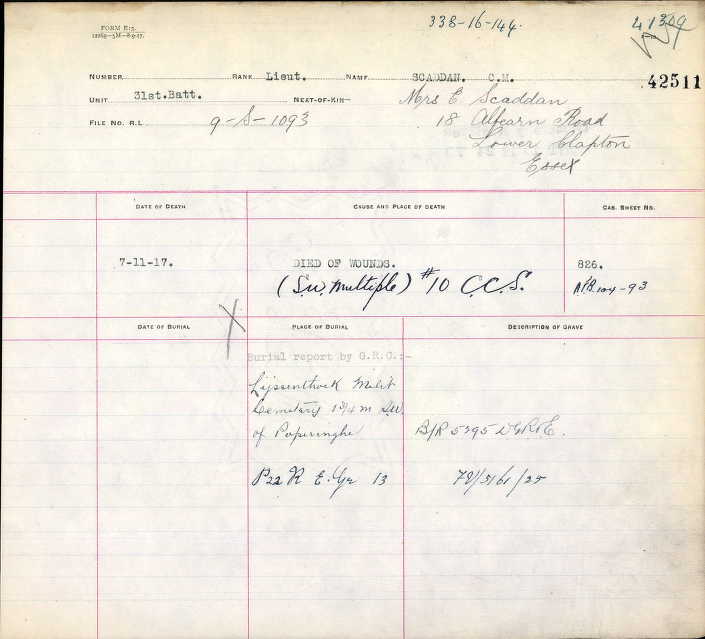 FORM E13.
338-16-144.
NUMBER RANK Lieut. NAME SCADDAN. C.M. 42511
UNIT 31st.Batt. NEXT-OF-KIN— Mrs E Scaddan
FILE NO. R.L. 9-S-1093 18 Alfearn Road
Lower Clapton
Essex
DATE OF DEATH CAUSE AND PLACE OF DEATH CAS. SHEET NO.
7-11-17. DIED OF WOUNDS. 826.
(S.W. Multiple) #10 C.C.S. A.F.B. 104-93
DATE OF BURIAL PLACE OF BURIAL DESCRIPTION OF GRAVE
Burial report by G.R.C.:-
Lijssenthoek Milit
Cemetery 1 3/4 m S.W.
of Poperinghe B/R 5395 D G R & E.
P 22 R E. Gr 13